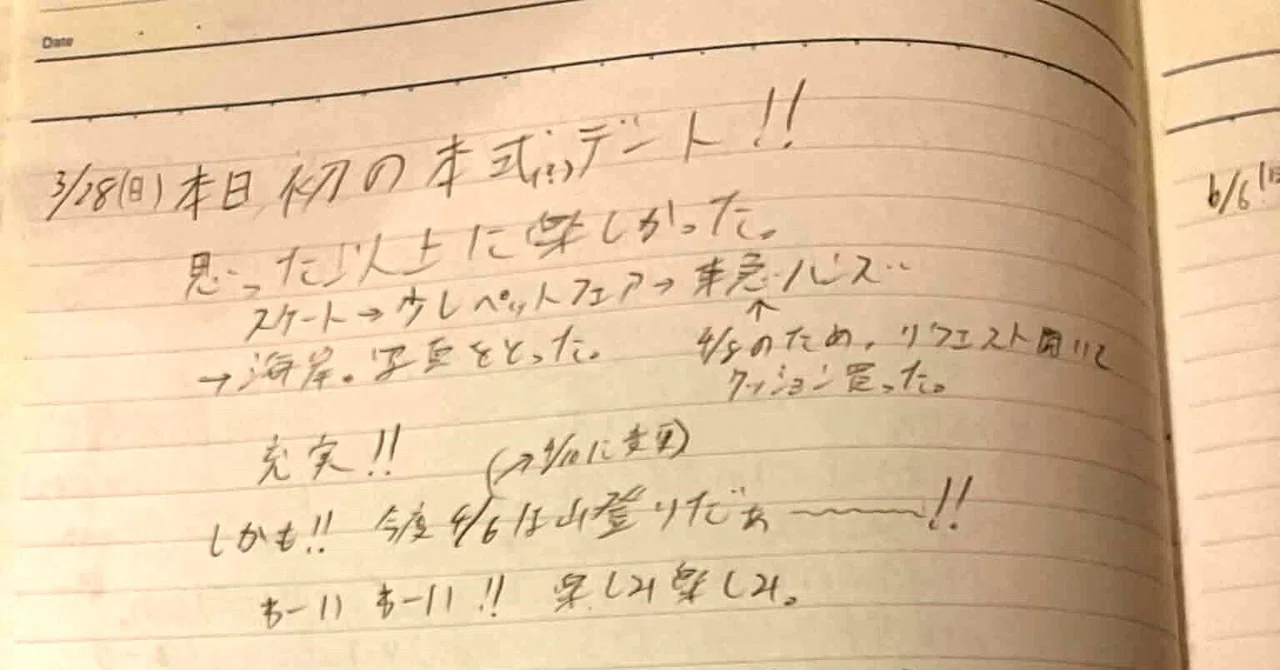 Date
3/28(日) 本日、初の本式(?)デート!!
思った以上に楽しかった。
スケート→少しペットフェア→東急ハンズ…
→海岸。写真をとった。
4/5のため、リクエスト聞いて
クッション買った。
充実!!
(→4/10に変更)
しかも!! 今度4/6は山登りだぁ〜〜〜!!
わーい わーい!! 楽しみ楽しみ。
6/6